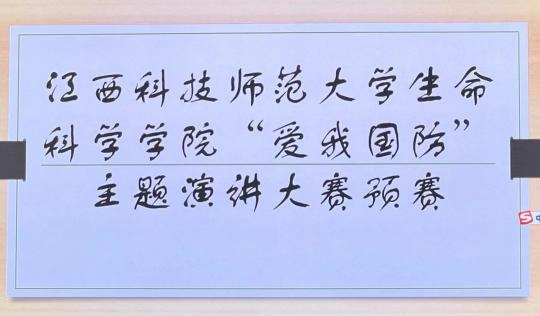 江西科技师范大学生命
科学学院“爱我国防”
主题演讲大赛预赛